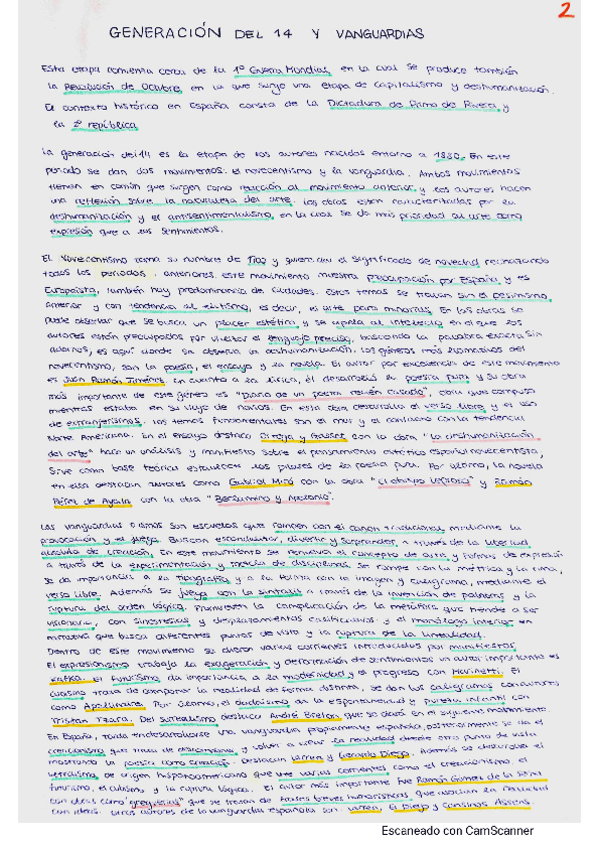 2
GENERACIÓN DEL 14 Y VANGUARDIAS
Esta etapa comienza cerca de la 1ª Guerra Mundial, en la cual se produce también
la Revolución de Octubre, en la que surge una etapa de capitalismo y deshumanización.
El contexto histórico en España consta de la Dictadura de Primo de Rivera y
la 2ª república.
La generación del 14 es la etapa de los autores nacidos entorno a 1880. En este
periodo se dan dos movimientos: el novecentismo y la vanguardia. Ambos movimientos
tienen en común que surgen como reacción al movimiento anterior y los autores hacen
una reflexión sobre la naturaleza del arte. Las obras están caracterizadas por la
deshumanización y el antisentimentalismo, en la cual se da más prioridad al arte como
expresión que a los sentimientos.
El Novecentismo toma su nombre de 1900 y quieren dar el significado de novedad rechazando
todos los periodos anteriores. Este movimiento muestra preocupación por España y es
Europeísta, también hay predominancia de ciudades. Estos temas se tratan sin el pesimismo
anterior y con tendencia al elitismo, es decir, el arte para minorías. En las obras se
puede observar que se busca un placer estético y se apela al intelecto en el que los
autores están preocupados por utilizar el lenguaje preciso, buscando la palabra exacta, sin
adornos, es aquí donde se observa la deshumanización. Los géneros más llamativos del
novecentismo, son la poesía, el ensayo y la novela. El autor por excelencia de este movimiento
es Juan Ramón Jiménez. En cuanto a la lírica, él desarrolla su poesía pura y su obra
más importante de este género es "Diario de un poeta recién casado", obra que compuso
mientras estaba en su viaje de novios. En esta obra desarrolla el verso libre y el uso
de extranjerismos. Los temas fundamentales son el mar y el contacto con la tendencia
Norte Americana. En el ensayo destaca Ortega y Gasset con la obra "La deshumanización
del arte" hace un análisis y manifiesto sobre el pensamiento artístico español novecentista,
sirve como base teórica estableciendo los pilares de la poesía pura. Por último, la novela
en ella destacan autores como Gabriel Miró con la obra "El obispo leproso" y Ramón
Pérez de Ayala con la obra "Belarmino y Apolonio".
Las vanguardias o ismos son escuelas que rompen con el canon tradicional mediante la
provocación y el juego. Buscan escandalizar, divertir y sorprender, a través de la libertad
absoluta de creación. En este movimiento se renueva el concepto de arte y formas de expresión
a través de la experimentación y mezcla de disciplinas. Se rompe con la métrica y la rima,
se da importancia a la tipografía y a su forma con la imagen y caligrama, mediante el
verso libre. Además se juega con la sintaxis a través de la invención de palabras y la
ruptura del orden lógico. Promueven la complicación de la metáfora que tiende a ser
visionaria, con sinestesias y desplazamientos calificativos y el monólogo interior en
narrativa que busca diferentes puntos de vista y la ruptura de la linealidad.
Dentro de este movimiento se dieron varias corrientes introducidas por manifiestos.
El expresionismo trabaja la exageración y deformación de sentimientos un autor importante es
Kafka. El futurismo da importancia a la modernidad y el progreso con Marinetti. El
cubismo trata de componer la realidad de forma distinta, se dan los caligramas con autores
como Apollinaire. Por último, el dadaísmo da la espontaneidad y pureza infantil con
Tristan Tzara. Del surrealismo destaca André Breton que se dará en el siguiente movimiento.
En España, tarda en desarrollarse una vanguardia propiamente española, posteriormente se da el
creacionismo que trata de y volver a crear la realidad desde otro punto de vista
mostrando la poesía como creación. Destacan Larrea y Gerardo Diego. Además se desarrolla el
ultraísmo, de origen hispanoamericano que une varias corrientes como el creacionismo, el
futurismo, el cubismo y la ruptura lógica. El autor más importante fue Ramón Gómez de la Serna
con ideas como "greguerías" que se tratan de frases breves humorísticas que asocian la realidad
con ideas. Otros autores de la vanguardia española son Larrea, G. Diego y Cansinos Assens.
Escaneado con CamScanner